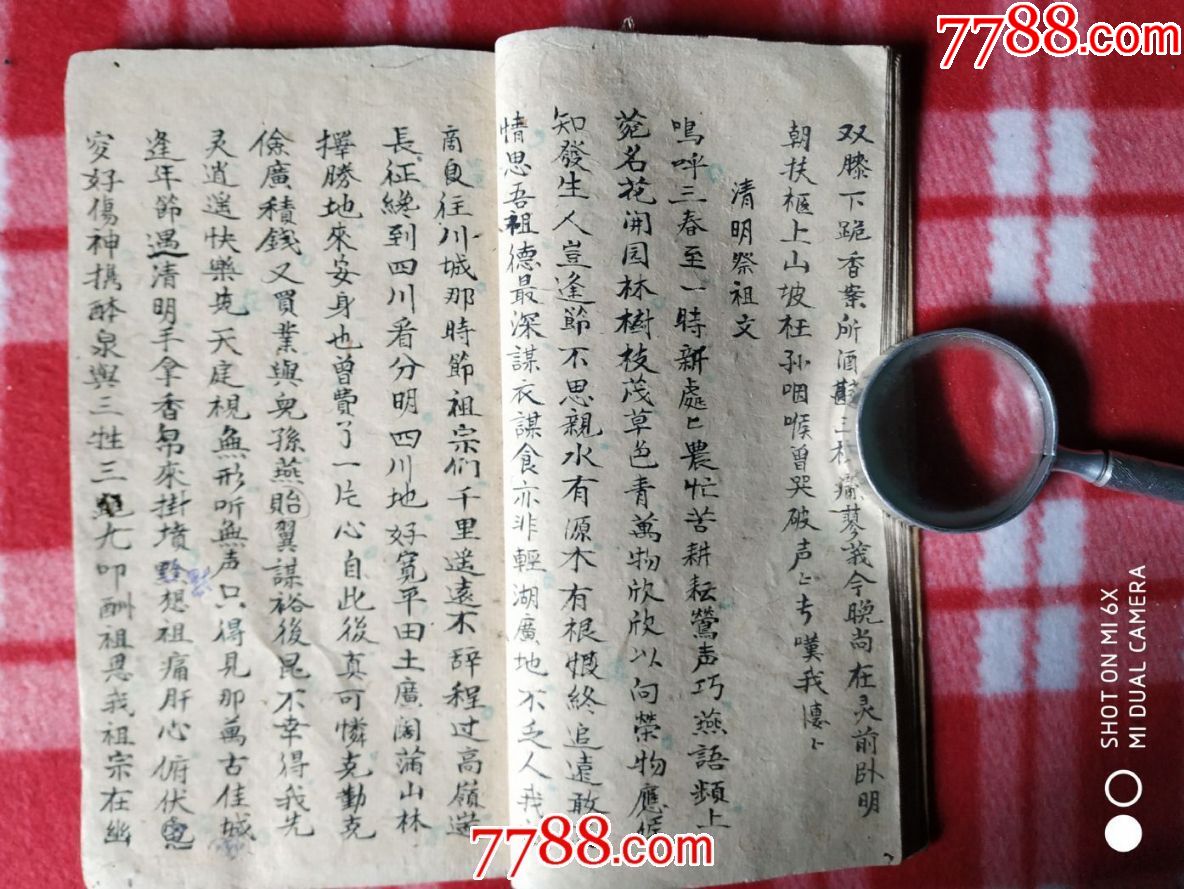 双膝下跪香案所酒三杯痛蓼莪今晚尚在灵前卧明
朝扶柩上山坡枉孙咽喉曾哭破声匕嘆我
清明祭祖文
嗚呼三春至一時新處匕農忙苦耕耘鶯声巧燕語頻上
苑名花開园林樹枝茂草色青萬物欣欣以向榮物應候
知發生人豈逢節不思親水有源木有根慎終追遠敢
情思吾祖德最深謀衣謀食亦非輕湖廣地不乏人我
商良往川城那時節祖宗们千里遥遠不辞程过高嶺
長征纔到四川看分明四川地好寛平田土廣闊蒲山林
擇勝地來安身也曾費了一片心自此後真可憐克勤克
儉廣積錢又買業與兒孫燕貽翼謀裕後昆不幸得我先
灵逍遥快樂天庭視無形听無声只得見那萬古佳城
逢年節遇清明手拿香帛來掛墳想祖痛肝心俯伏
好傷神携酴泉與三牲三九叩酬祖恩我祖宗在幽
7788.com
7788.com
SHOT ON MI 6X
MI DUAL CAMERA